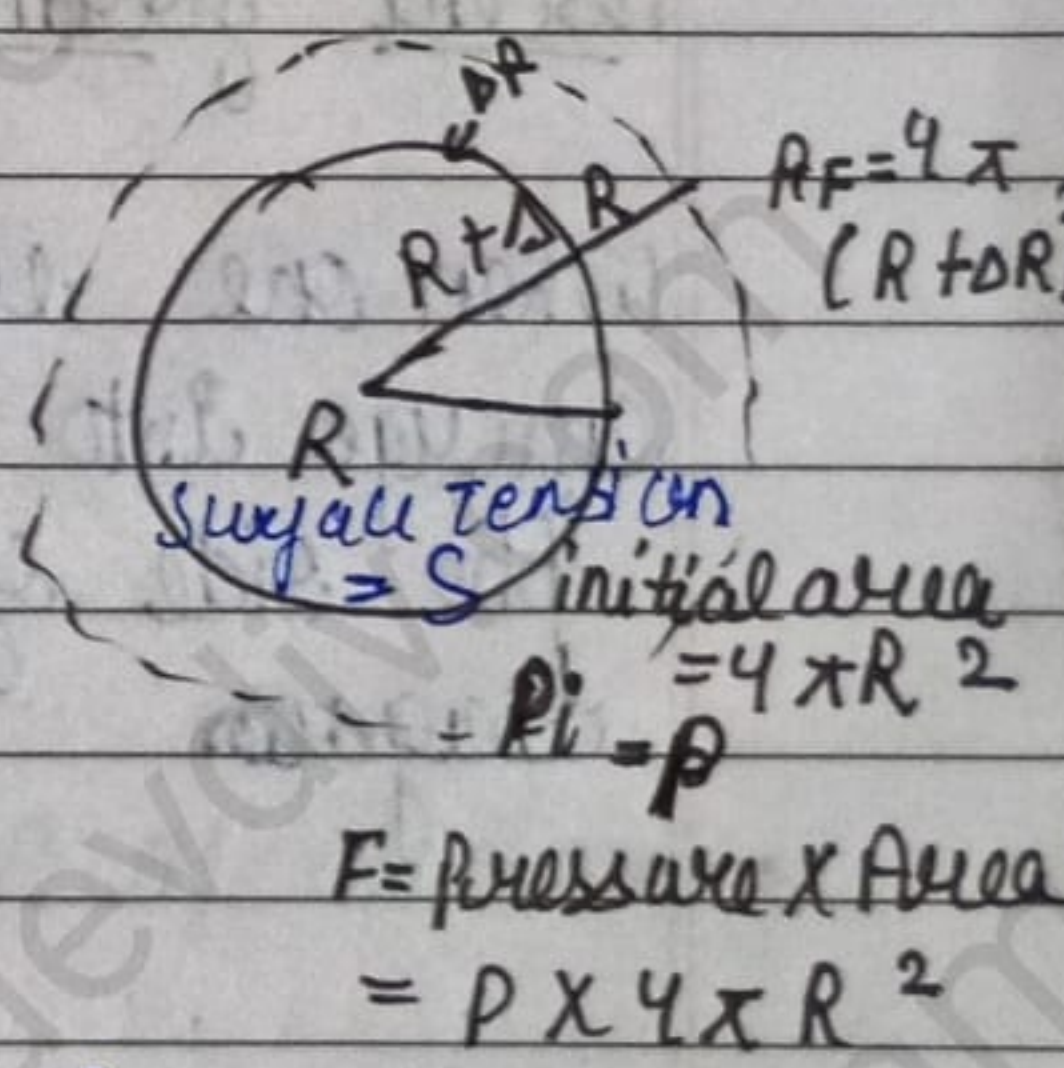 ΔR
R+Δ R
A_F = 4π
(R+ΔR)
R
Surface Tension
= S
initial area
= 4πR²
Pi = P
F = Pressure × Area
= P × 4πR²